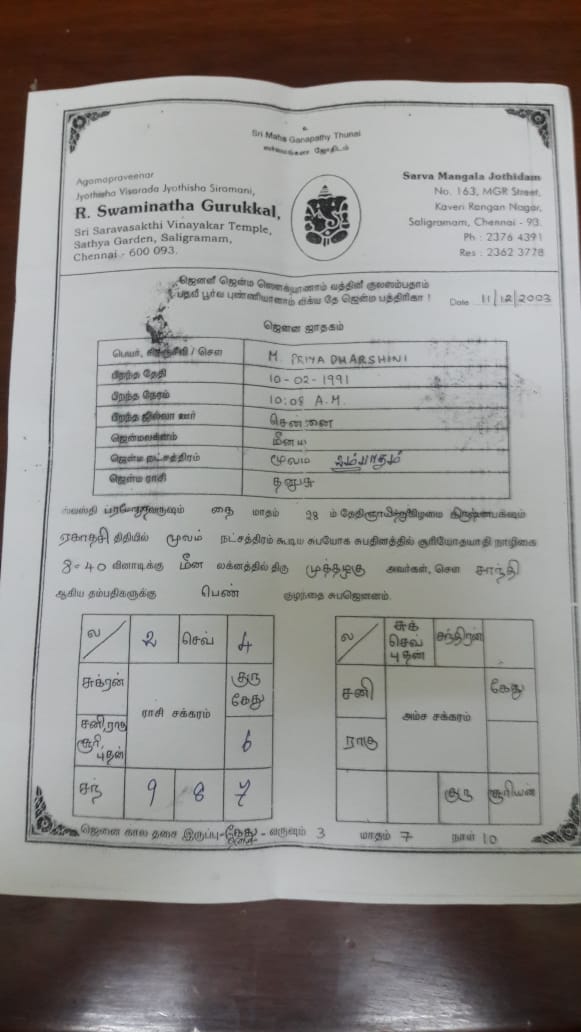 Sri Maha Ganapathy Thunai
ஜோதிடம்
Agamapraveenar
Jyothisha Visarada Jyothisha Siramani,
R. Swaminatha Gurukkal,
Sri Saravasakthi Vinayakar Temple,
Sathya Garden, Saligramam,
Chennai - 600 093.
Sarva Mangala Jothidam
No. 163, MGR Street,
Kaveri Rangan Nagar,
Saligramam, Chennai - 93.
Ph : 2376 4391
Res : 2362 3778
ஜெனனீ ஜென்ம ஸௌக்யானாம் வத்தினீ குலஸம்பதாம்
பதவீ பூர்வ புண்ணியானாம் லிக்ய தே ஜென்ம பத்திரிகா !
Date : 11/12/2003
ஜெனன ஜாதகம்
பெயர், சிரஞ்சீவி / சௌ M. PRIYA DHARSHINI
பிறந்த தேதி 10-02-1991
பிறந்த நேரம் 10:08 A.M.
பிறந்த ஜில்லா ஊர் சென்னை
ஜென்மலக்னம் மீனம்
ஜென்ம நட்சத்திரம் மூலம்
ஜென்ம ராசி தனுசு
ஸ்வஸ்தி வருஷம் தை மாதம் 28 ம் தேதி ஞாயிற்றுகிழமை கிருஷ்ணபக்ஷம்
ஏகாதசி திதியில் மூலம் நட்சத்திரம் கூடிய சுபயோக சுபதினத்தில் சூரியோதயாதி நாழிகை
8-40 வினாடிக்கு மீன லக்னத்தில் திரு முத்தழகு அவர்கள், சௌ சாந்தி
ஆகிய தம்பதிகளுக்கு பெண் குழந்தை சுபஜெனனம்.
ல 2 செவ் 4
சுக்ரன் ராசி சக்கரம் குரு கேது
சனி ராகு சூரி புதன் 6
சந் 9 8 7
ல சுக் செவ் புதன் சந்திரன்
சனி அம்ச சக்கரம் கேது
ராகு
குரு சூரியன்
ஜெனன கால தசை இருப்பு - கேது - வருஷம் 3 மாதம் 7 நாள் 10